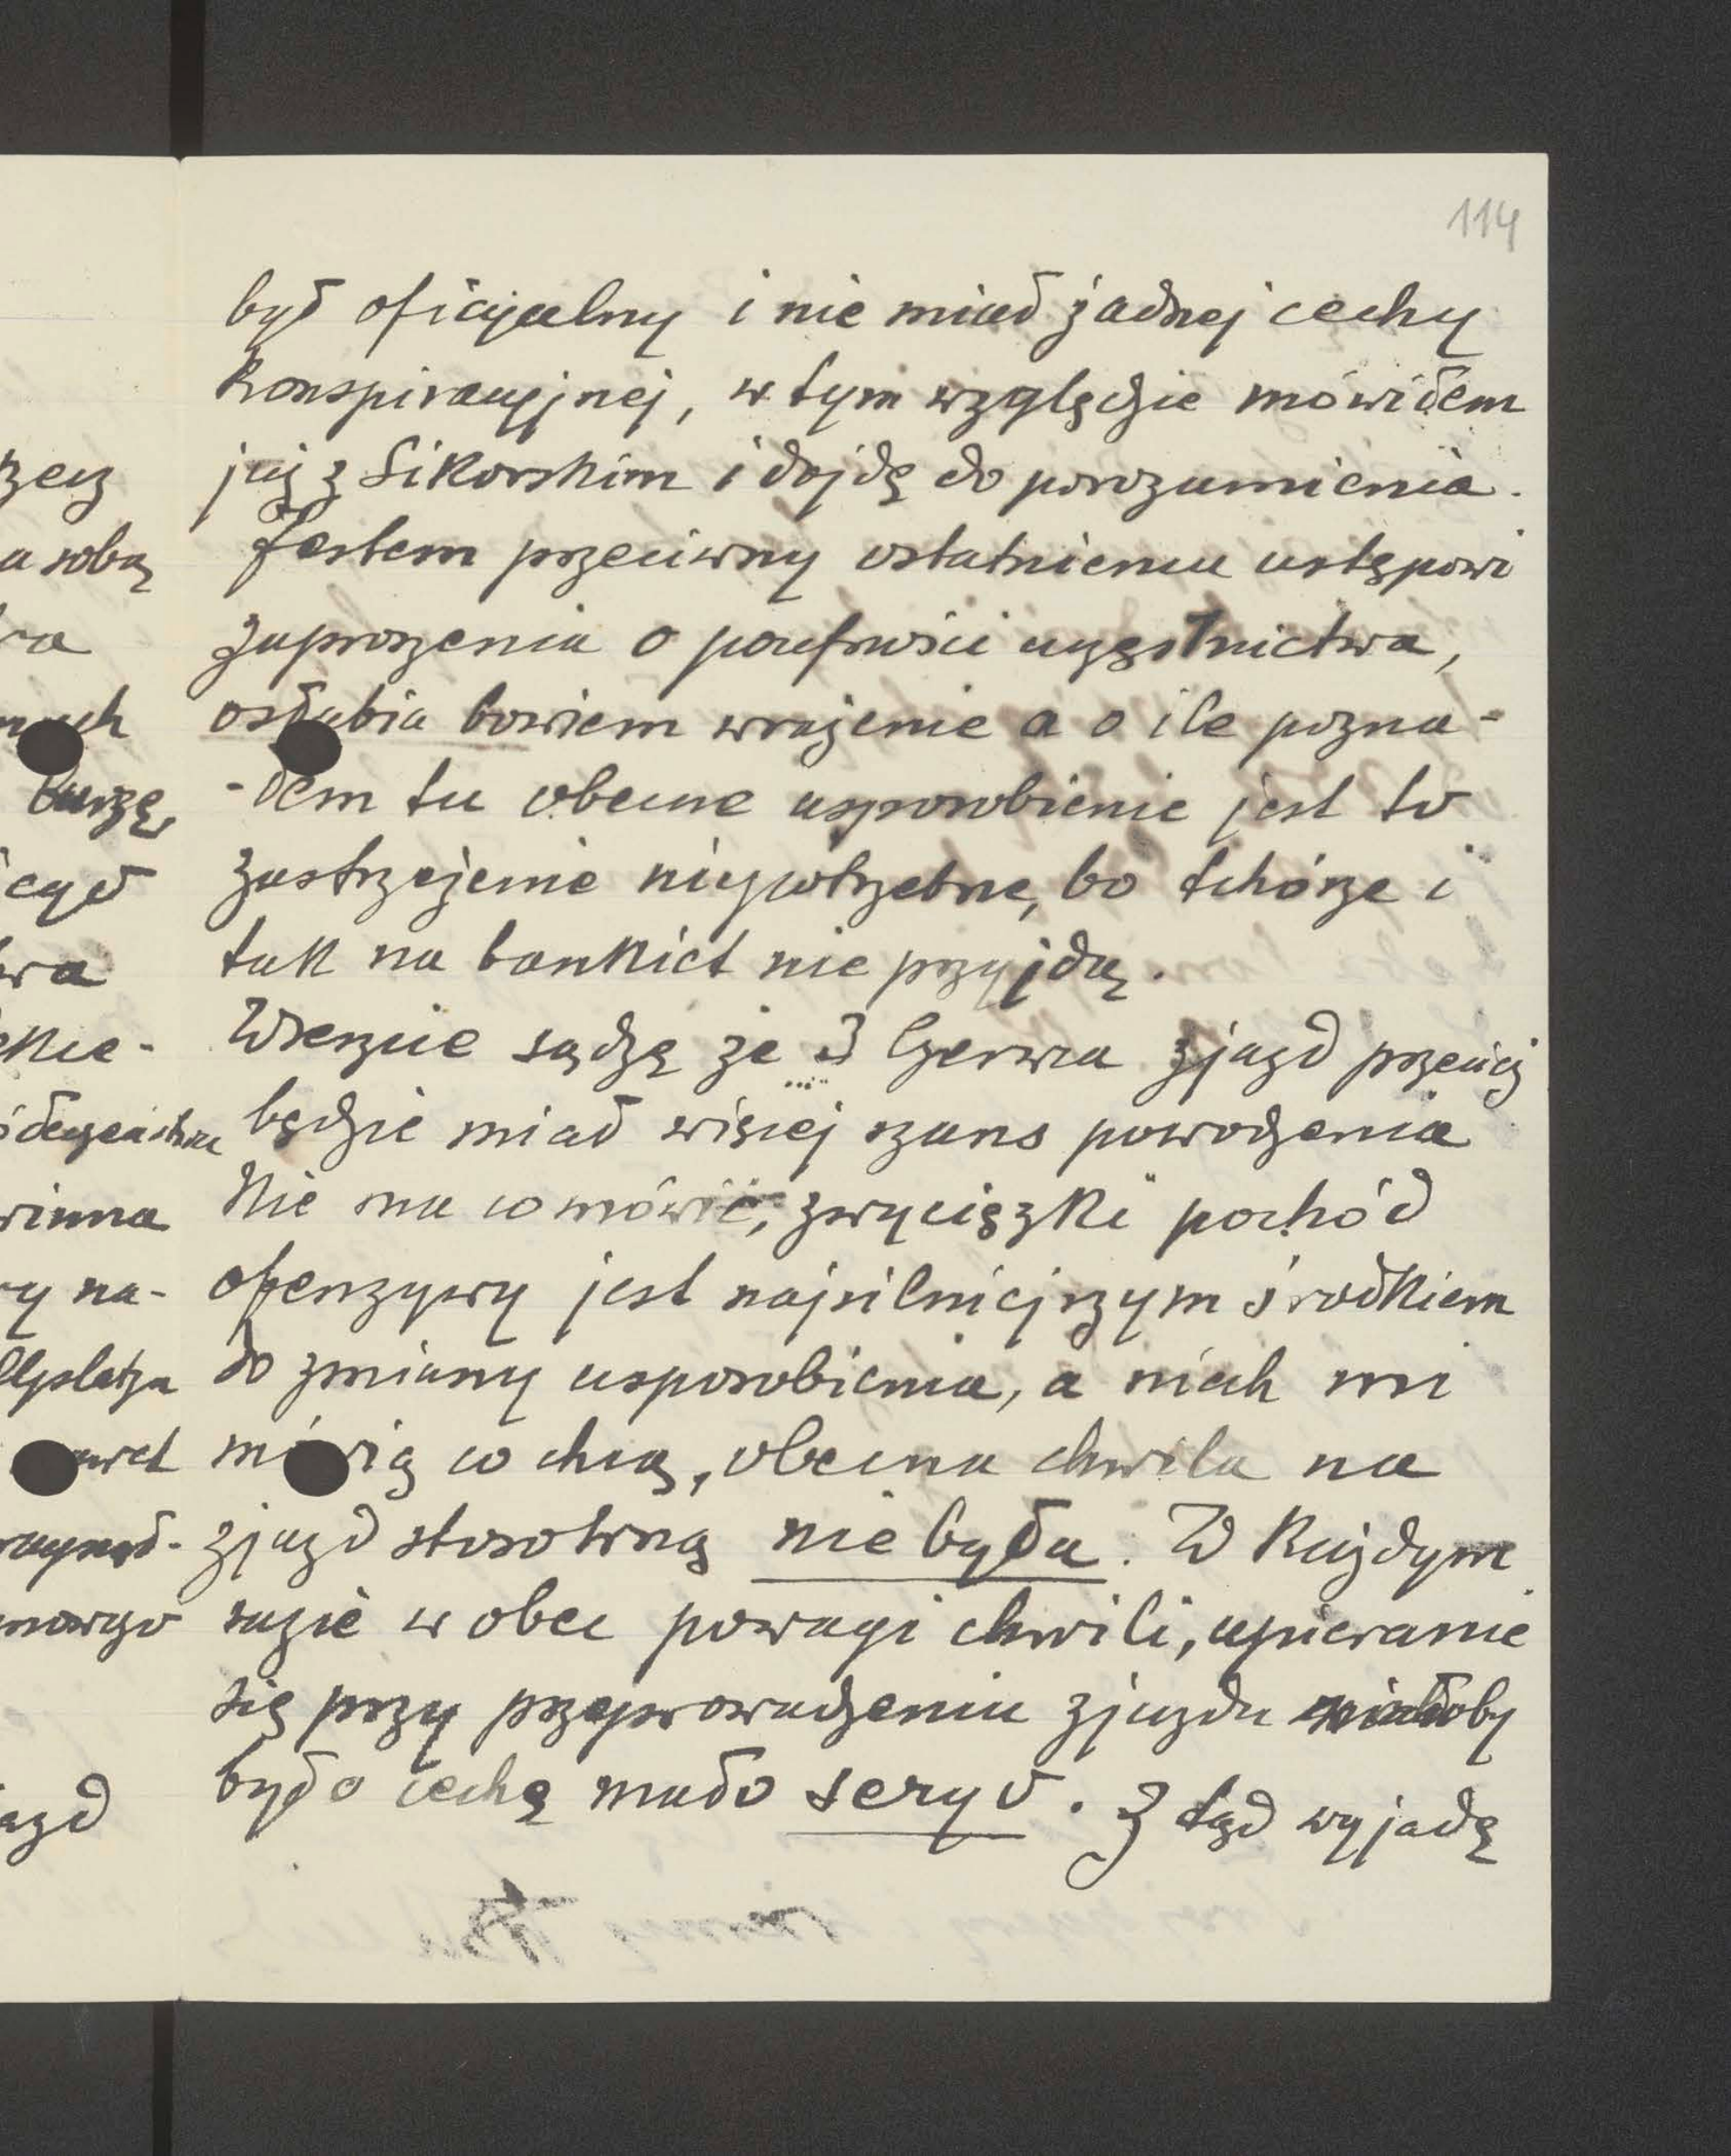 114
był oficyjalny i nie miał żadnej cechy
konspiracyjnej, w tym względzie mówiłem
już z Sikorskim i dojdę do porozumienia.
Jestem przeciwny ostatniemu ustępowi
zaproszenia o poufności uczęstnictwa,
osłabia bowiem wrażenie a o ile pozna-
-łem tu obecne usposobienie jest to
zastrzeżenie niepotrzebne, bo tchórze i
tak na bankiet nie przyjdą.
Wreszcie sądzę że 3 Czerwca zjazd prędzej
będzie miał więcej szans powodzenia
Nie ma co mówić, zwycięzki pochód
ofenzywy jest najsilniejszym środkiem
do zmiany usposobienia, a niech mi
mówią co chcą, obecna chwila na
zjazd stosowną nie była. W każdym
razie wobec powagi chwili, upieranie
się przy przeprowadzeniu zjazdu miałoby
było cechę mało seryo. Z tąd wyjadę
rzecz
a sobą
ra
burzę,
icył
wa
winna
ry na-
nowego